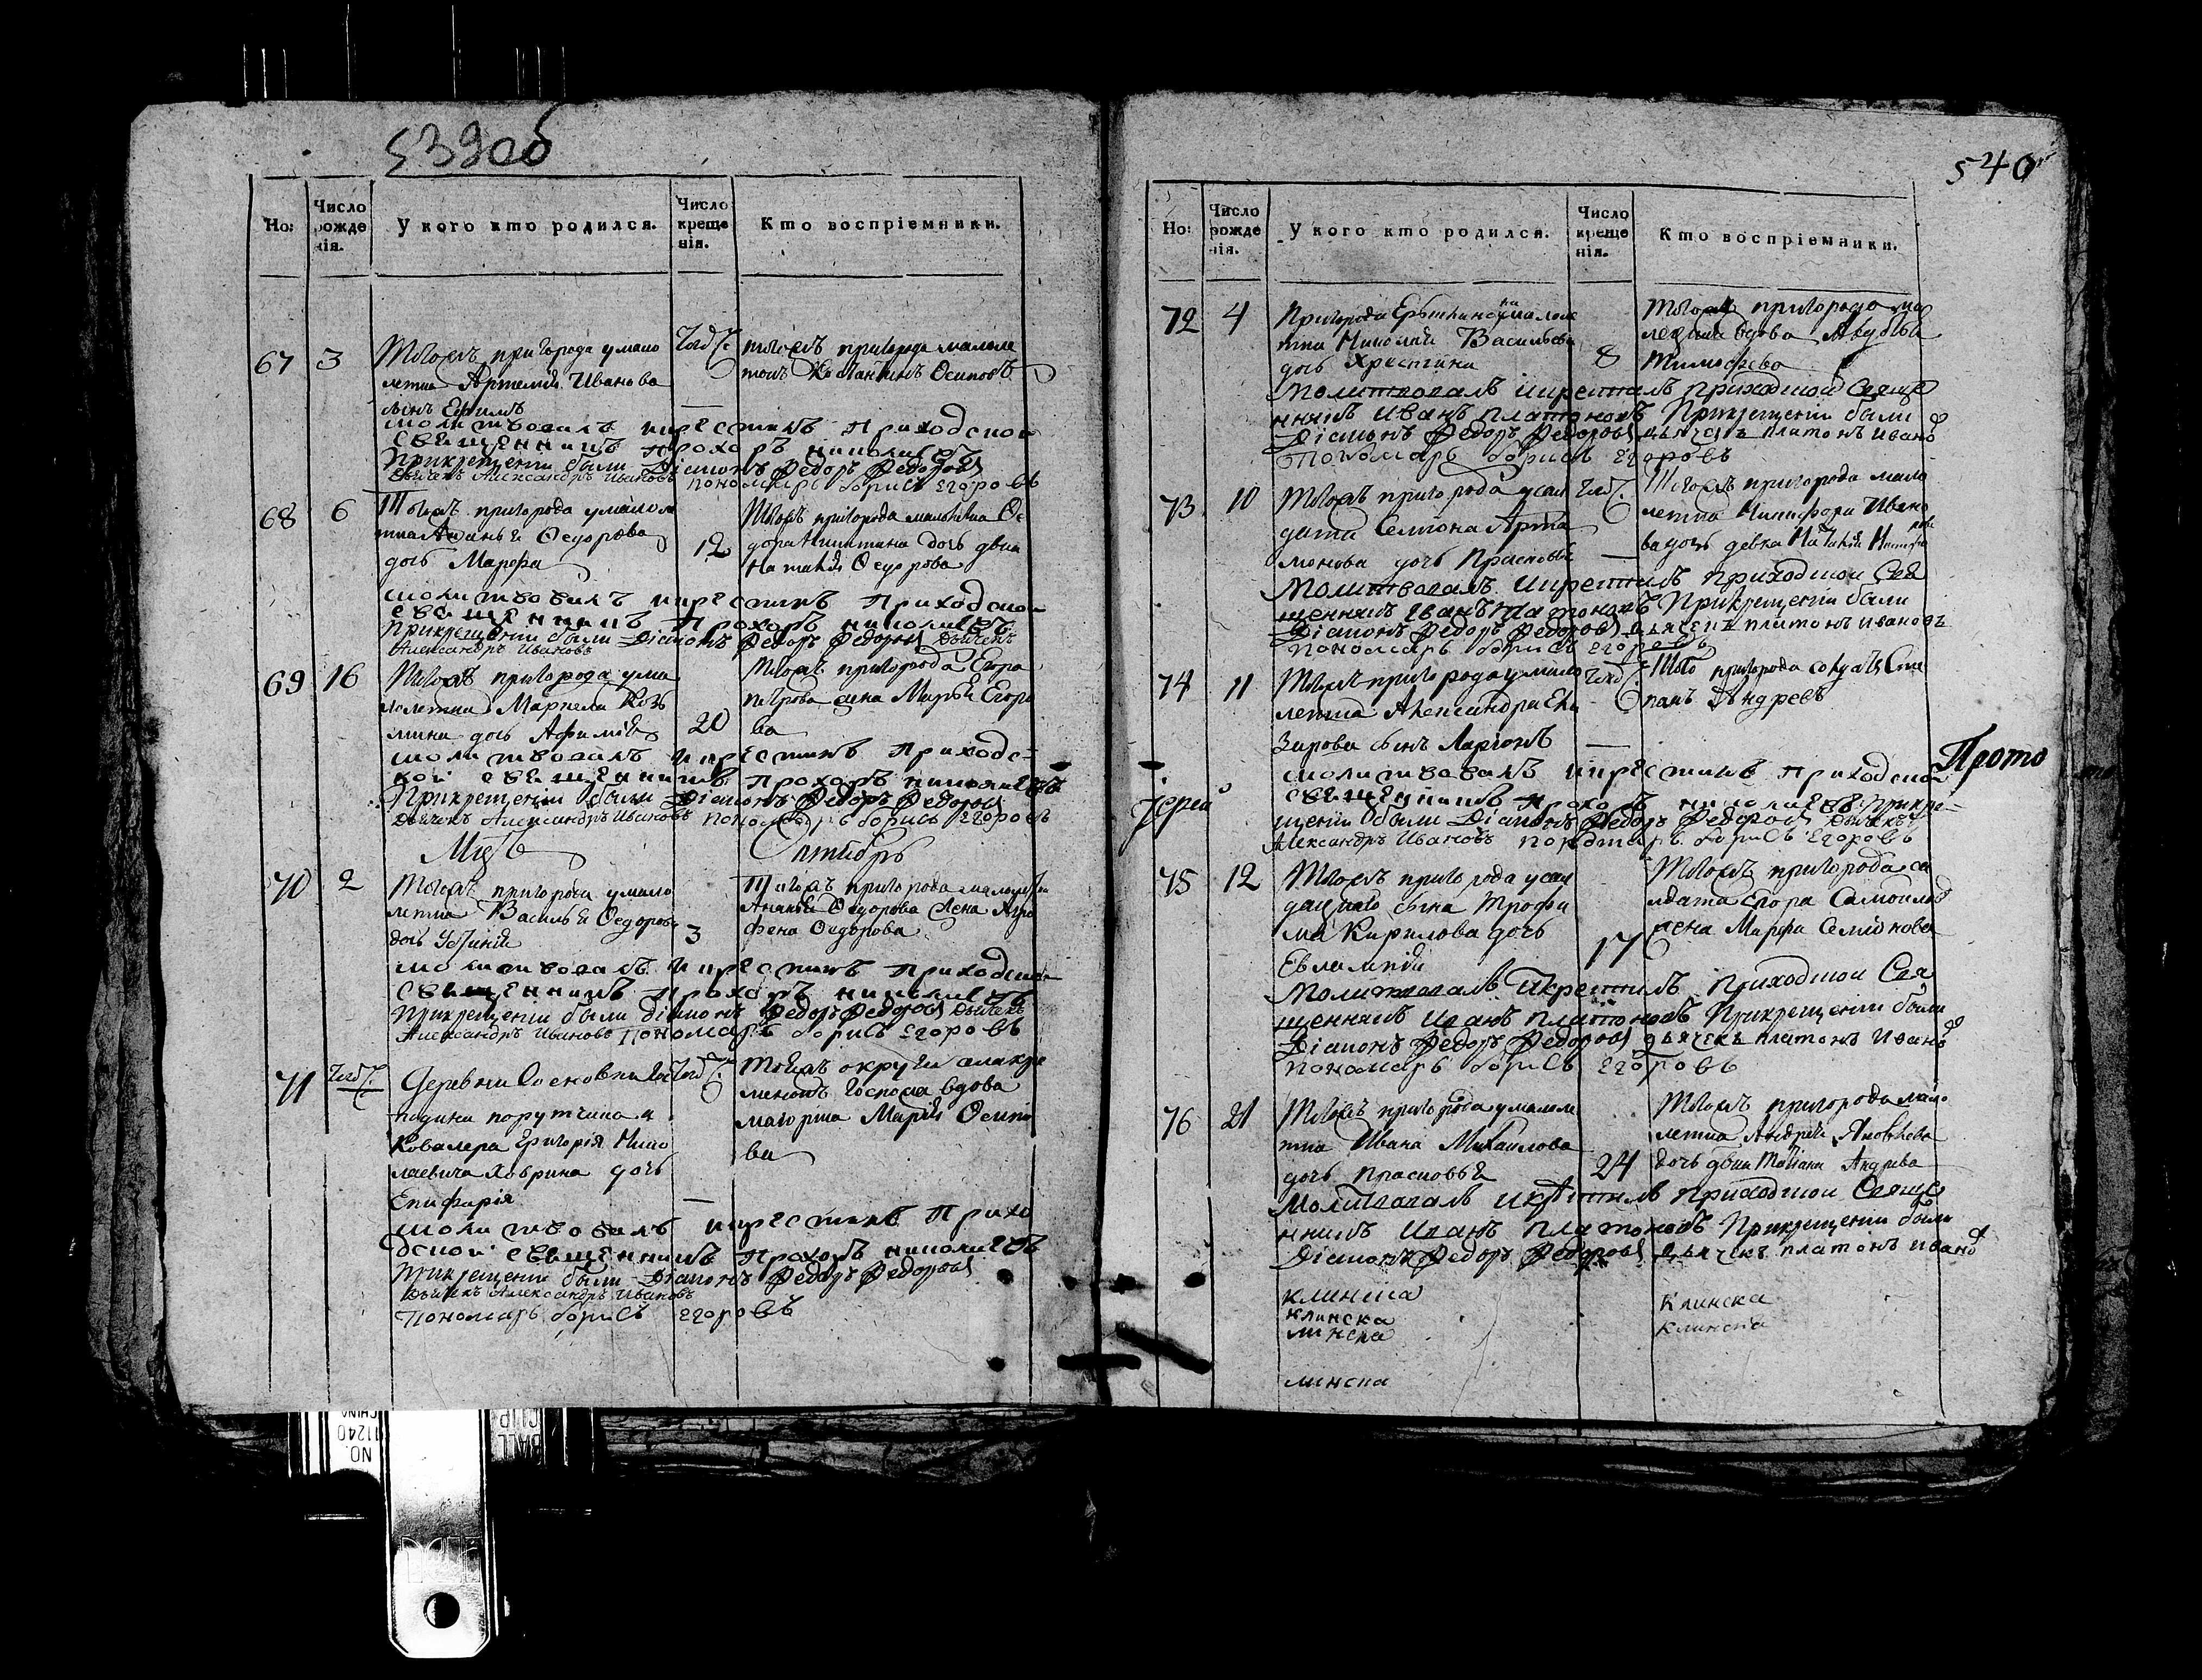 539об
Но:
Число рожденія.
У кого кто родился.
Число крещенія.
Кто воспріемники.
67
3
Тогожъ пригорода умало
летка Артемья Иванова
сынъ Ефимъ
тогожъ пригорода малоле
токъ Костантинъ Осиповъ
молитвовалъ икрестилъ Приходской
священникъ Прохоръ николаевъ
Прикрещеніи были Діаконъ Федоръ Федоровъ
Дьячекъ Александръ Ивановъ пономарь борисъ Егоровъ
68
6
Тогожъ пригорода умалол
Федорова
дочь Марфа
12
Тогожъ пригорода малолетка Ѳе
дора Никитина дочь двка
Наталья Ѳедорова
молитвовалъ икрестилъ Приходской
священникъ Прохоръ николаевъ
Прикрещеніи были Діаконъ Федоръ Федоровъ Дьячекъ
Александръ Ивановъ
69
16
Тогожъ пригорода ума
лолетка Маркела Козь
мина дочь Афимья
20
Тогожъ пригорода Егора
петрова жена Марья Егоро
ва
молитвовалъ икрестилъ Приходс-
кой священникъ Прохоръ николаевъ
Прикрещеніи были Діаконъ Федоръ Федоровъ
Дьячекъ Александръ Ивановъ пономарь борисъ Егоровъ
Мцъ Октябрь
70
2
Тогожъ пригорода умало
летка Василья Ѳедорова
дочь Устинья
3
Тогожъ пригорода малолетка
Ананьи Ѳедорова жена Агра
фена Ѳедорова
молитвовалъ икрестилъ Приходской
священникъ Прохоръ николаевъ
Прикрещеніи были діаконъ Федоръ Федоровъ Дьячекъ
Александръ Ивановъ Пономарь борисъ Егоровъ
71
Деревни Сосновки Гос
подина порутчика и
Ковалера Григорія Нико
лаевича Ховрина дочь
Епифарія
Тойжъ округи
Госпожа вдова
маіорша Марья Осипо
ва
молитвовалъ икрестилъ Прихо
дской священникъ Прохоръ николаевъ
Прикрещеніи были Діаконъ Федоръ Федоровъ
Дьячекъ Александръ Ивановъ
Пономарь борисъ Егоровъ
540
Но:
Число рожденія.
У кого кто родился.
Число крещенія.
Кто воспріемники.
72
4
Пригорода Ерыклинска умалоле
тка Николая Васильева
дочь Христина
8
Тогожъ пригорода ма
вдова Авдотья
Тимофѣева
Молитвовалъ икрестилъ приходской Свяще
нникъ Иванъ платоновъ Прикрещеніи были
Діаконъ Федоръ Федоровъ дьячекъ платонъ Ивановъ
Пономарь борисъ Егоровъ
73
10
Тогожъ пригорода усол
дата Семіона Арта
монова дочь Прасковья
Тогожъ пригорода мало
летка Никифора Ивано
ва дочь девка Наталья Никифорова
Молитвовалъ икрестилъ приходской Свя
щенникъ Иванъ Платоновъ Прикрещеніи были
Діаконъ Федоръ Федоровъ дьячекъ платонъ Ивановъ
Пономарь борисъ Егоровъ
74
11
Тогожъ пригорода умало
летка Александра Ека
Зарова сынъ Ларіонъ
Того пригорода солдатъ Сте
панъ Андревъ
молитвовалъ икрестилъ Приходской
священникъ Прохоръ николаевъ Прикре-
щеніи были Діаконъ Федоръ Федоровъ Дьячекъ
Александръ Ивановъ пономарь борисъ Егоровъ
Прото
Іерей
75
12
Тогожъ пригорода усол
дацкаго сына Трофи
ма Кирилова дочь
Евлампия
17
Тогожъ пригорода со
лдата Егора Самойлова
жена Марфа Семіонова
Молитвовалъ Икрестилъ приходской Свя
щенникъ Иванъ платоновъ Прикрещеніи были
Діаконъ Федоръ Федоровъ дьячекъ платонъ Ивановъ
Пономарь борисъ Егоровъ
76
21
Тогожъ пригорода умалоле
тка Ивана Михаилова
дочь Прасковья
24
Тогожъ пригорода мало
летка Андрея Яковлева
дочь двка Татіана Андрева
Молитвовалъ икрѣстилъ приходской Свяще
нникъ Иванъ Платоновъ Прикрещеніи были
Діаконъ Федоръ Федоровъ дьячекъ платонъ Ивановъ
клинска
клинска
линска
линска
Клинска
Клинска
NO.
11240
CHINA
BALL
CLIP